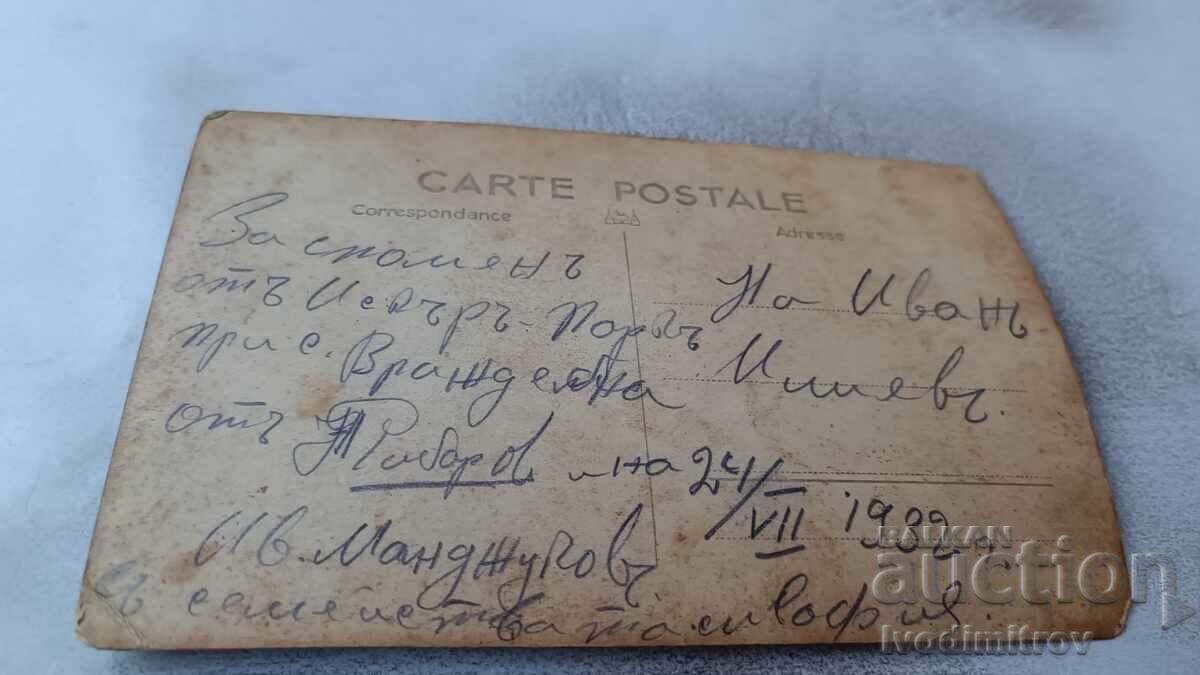 CARTE POSTALE
Correspondance
Adresse
За споменъ
отъ Искъръ-
при с. Враждебна
отъ Таборов и на
Ив. Манджуковъ
съ семействата си София.
На Иванъ
Илиевъ.
24/VII 1932 г.
BALKAN
auction
Ivodimitrov